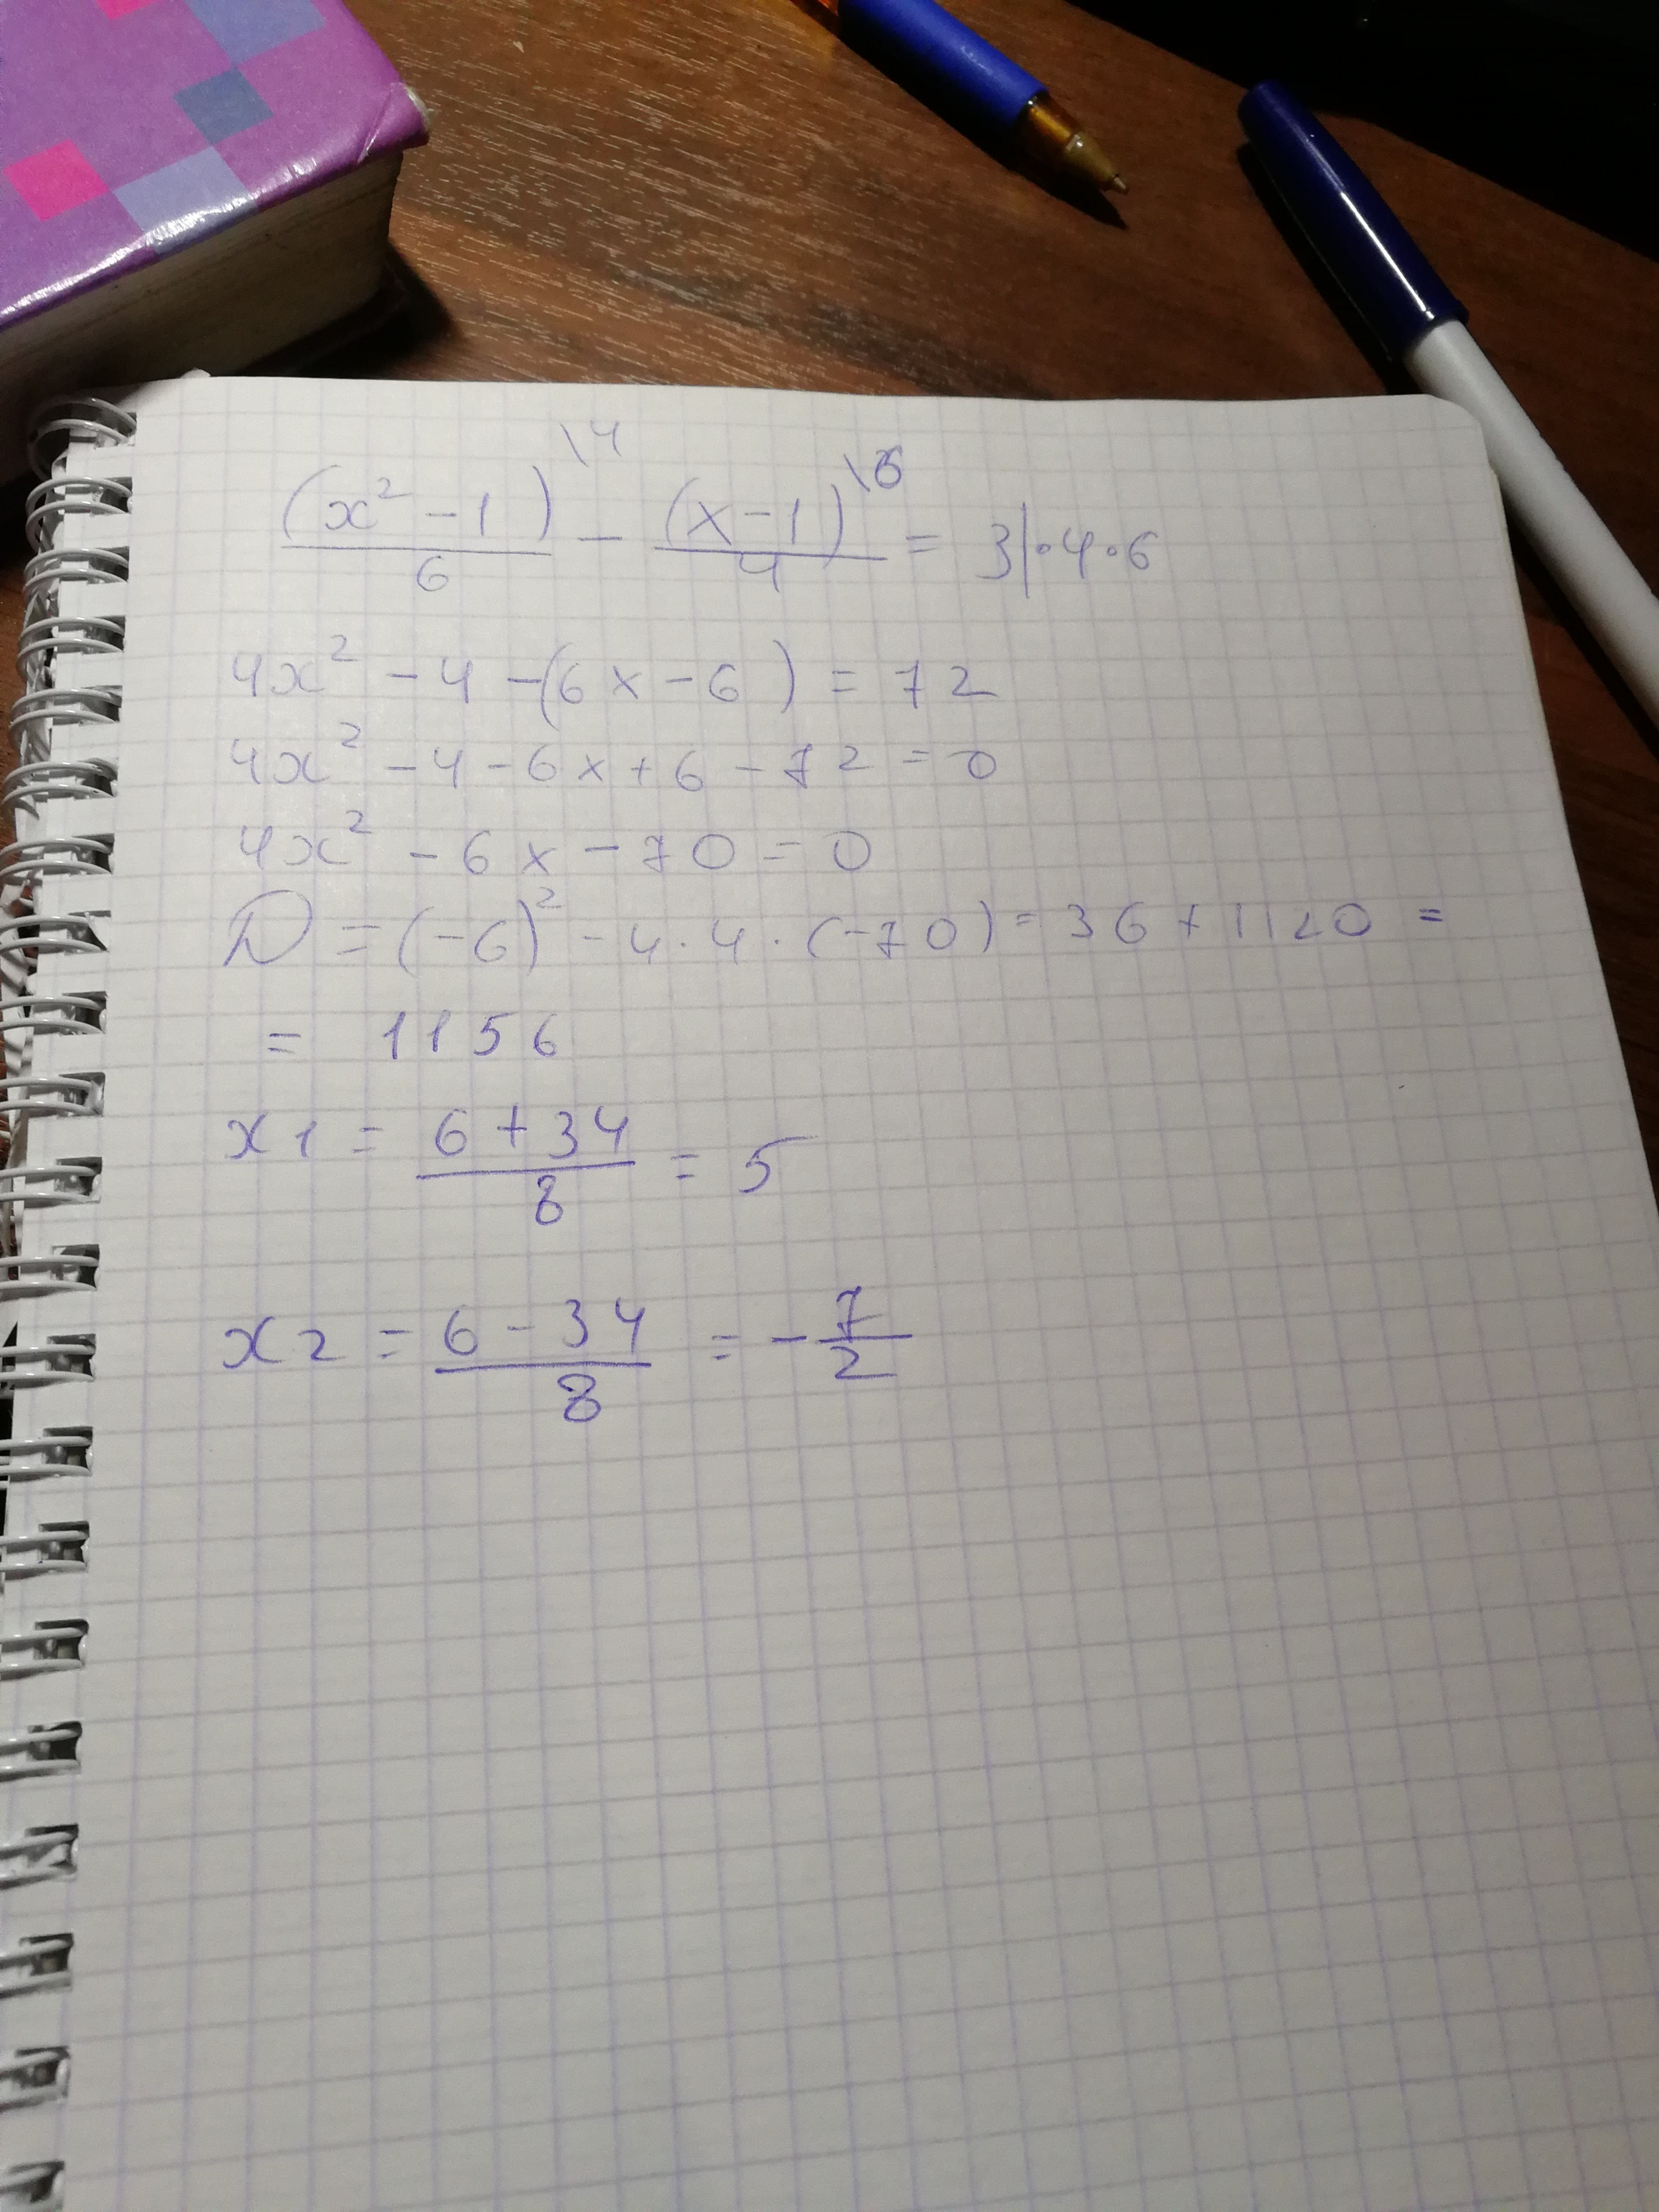 (x² - 1)\4 / 6 - (x - 1)\6 / 4 = 3|·4·6
4x² - 4 - (6x - 6) = 72
4x² - 4 - 6x + 6 - 72 = 0
4x² - 6x - 70 = 0
D = (-6)² - 4·4·(-70) = 36 + 1120 =
= 1156
x1 = 6 + 34 / 8 = 5
x2 = 6 - 34 / 8 = - 7 / 2